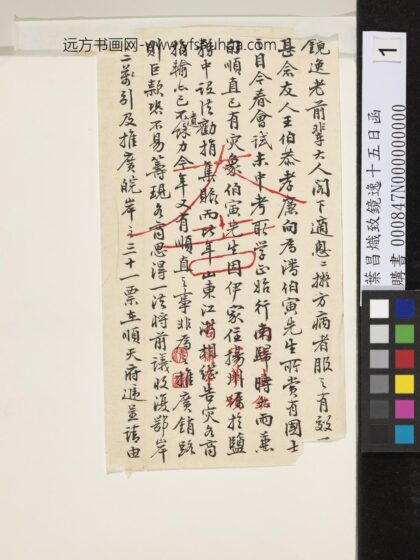 远方书画网-www.yfshuhua.com
鏡逸老前輩大人閣下適息二撥方病者服之有效
甚念友人王伯恭孝廉向為潘伯寅先生所賞有國士
目今春會試未中考取学正始行南歸時
的順直已有灾象伯寅先生因伊家住揚州囑於鹽
務中設法勸捐集賑而比年山東江浙相繼告灾各商
捐輸亦已不遺餘力今年又有順直之事非為推廣銷路
則巨款恐不易籌現各商思得一法將前議收復鄂岸
二萬引及推廣皖岸之三十一票在順天府遞並請由
1
葉昌熾致鏡逸十五日函
購書 000847N000000000